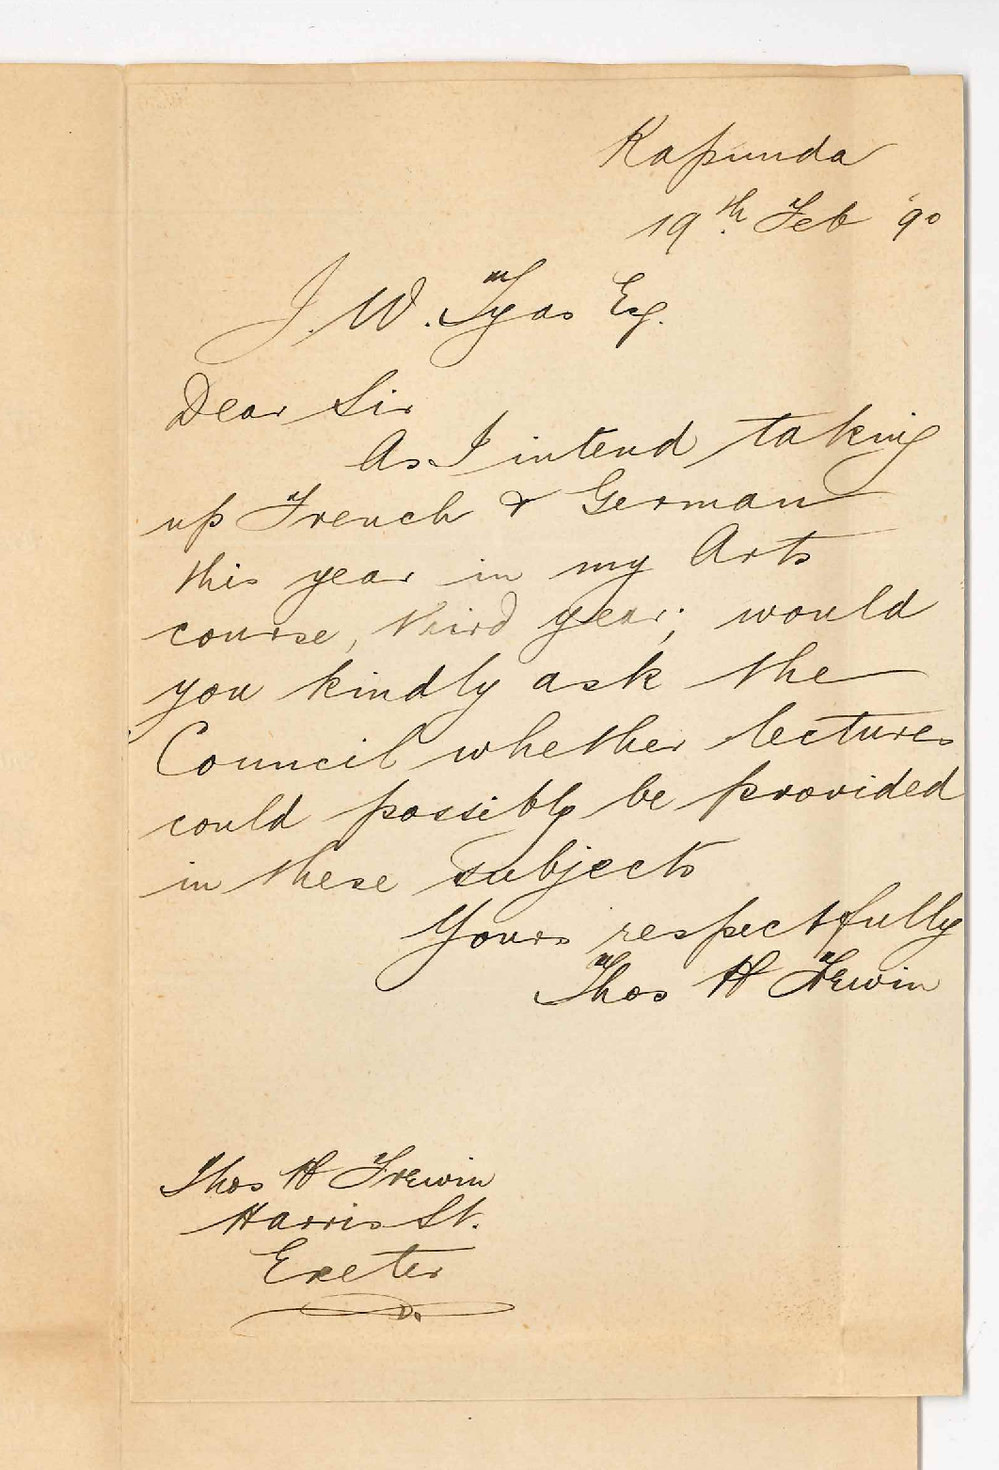 Kapunda
19th Feb '90
J. W. Tyas Esq.
Dear Sir
As I intend taking
up French & German
this year in my Arts
course, third year; would
you kindly ask the
Council whether lectures
could possibly be provided
in these subjects
Yours respectfully
Thos H Frewin
Thos H Frewin
Harris St.
Exeter